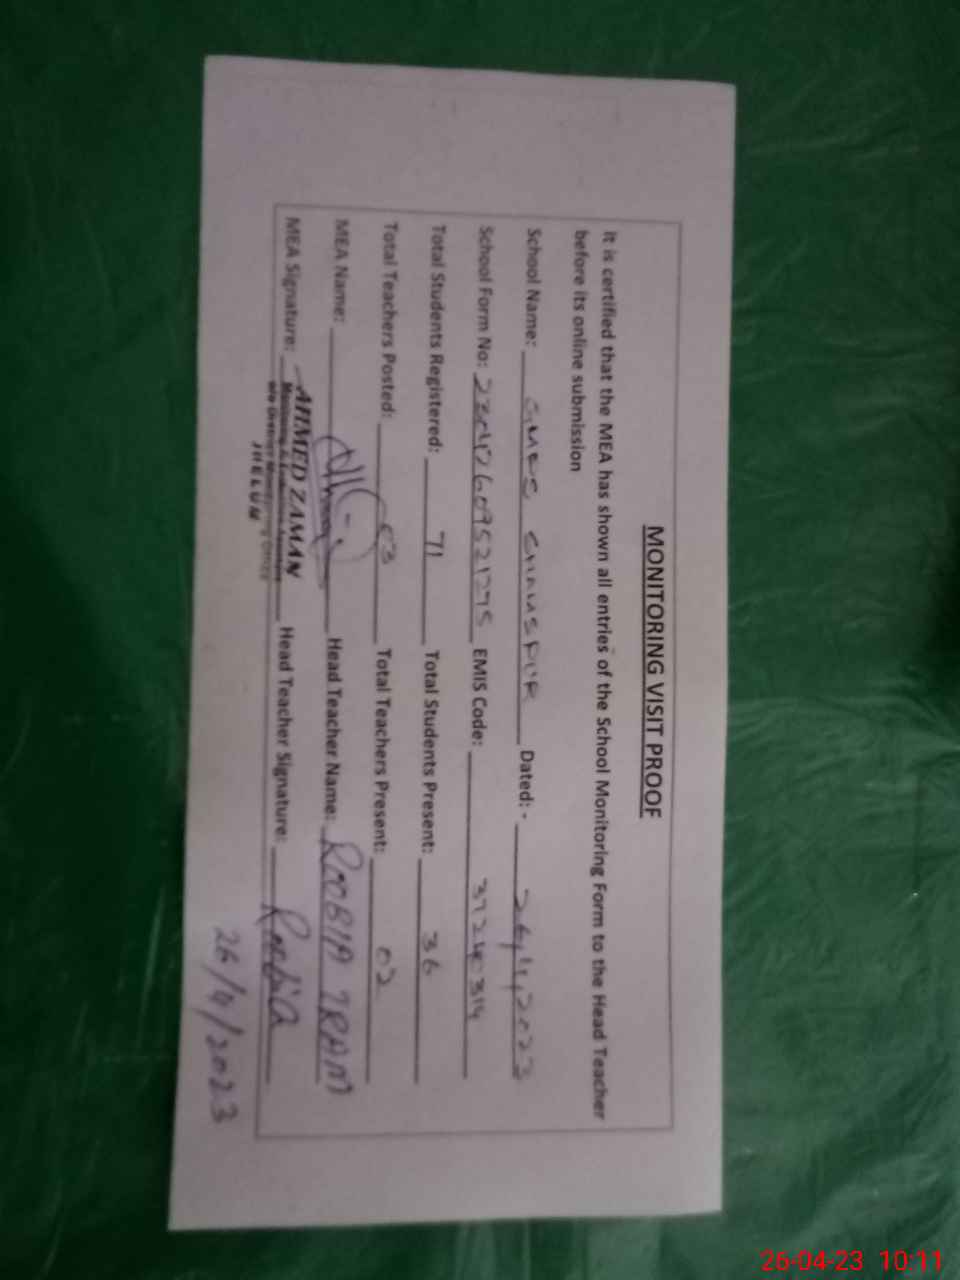 MONITORING VISIT PROOF
It is certified that the MEA has shown all entries of the School Monitoring Form to the Head Teacher
before its online submission
School Name: Dated: - 26/4/2023
School Form No: EMIS Code: 37240314
Total Students Registered: 71 Total Students Present: 36
Total Teachers Posted: 03 Total Teachers Present: 02
MEA Name: Head Teacher Name: ROOBIA IRAM
MEA Signature: AHMED ZAMAN Head Teacher Signature: Roobia
Monitoring & Evaluation Assistant
o/o District Monitoring Officer
JHELUM
26/4/2023
26-04-23 10:11